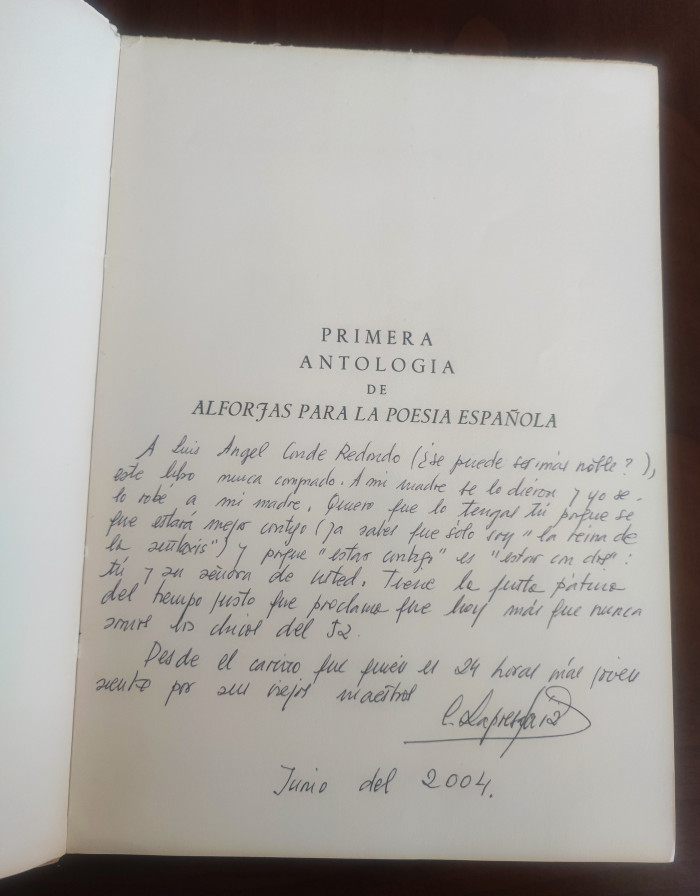 PRIMERA
ANTOLOGIA
DE
ALFORJAS PARA LA POESIA ESPAÑOLA
A Luis Angel Conde Redondo (¿se puede ser más noble?),
este libro nunca comprado. A mi madre se lo dieron y yo se
lo robé a mi madre. Quiero que lo tengas tú porque se
que estará mejor contigo (ya sabes que sólo soy "la reina de
la sintaxis") y porque "estar contigo" es "estar con dos":
tú y su señora de usted. Tiene la justa pátina
del tiempo justo que proclama que hoy más que nunca
somos los chicos del 52.
Desde el cariño que quien es 24 horas más joven
siente por sus viejos maestros
Junio del 2004.